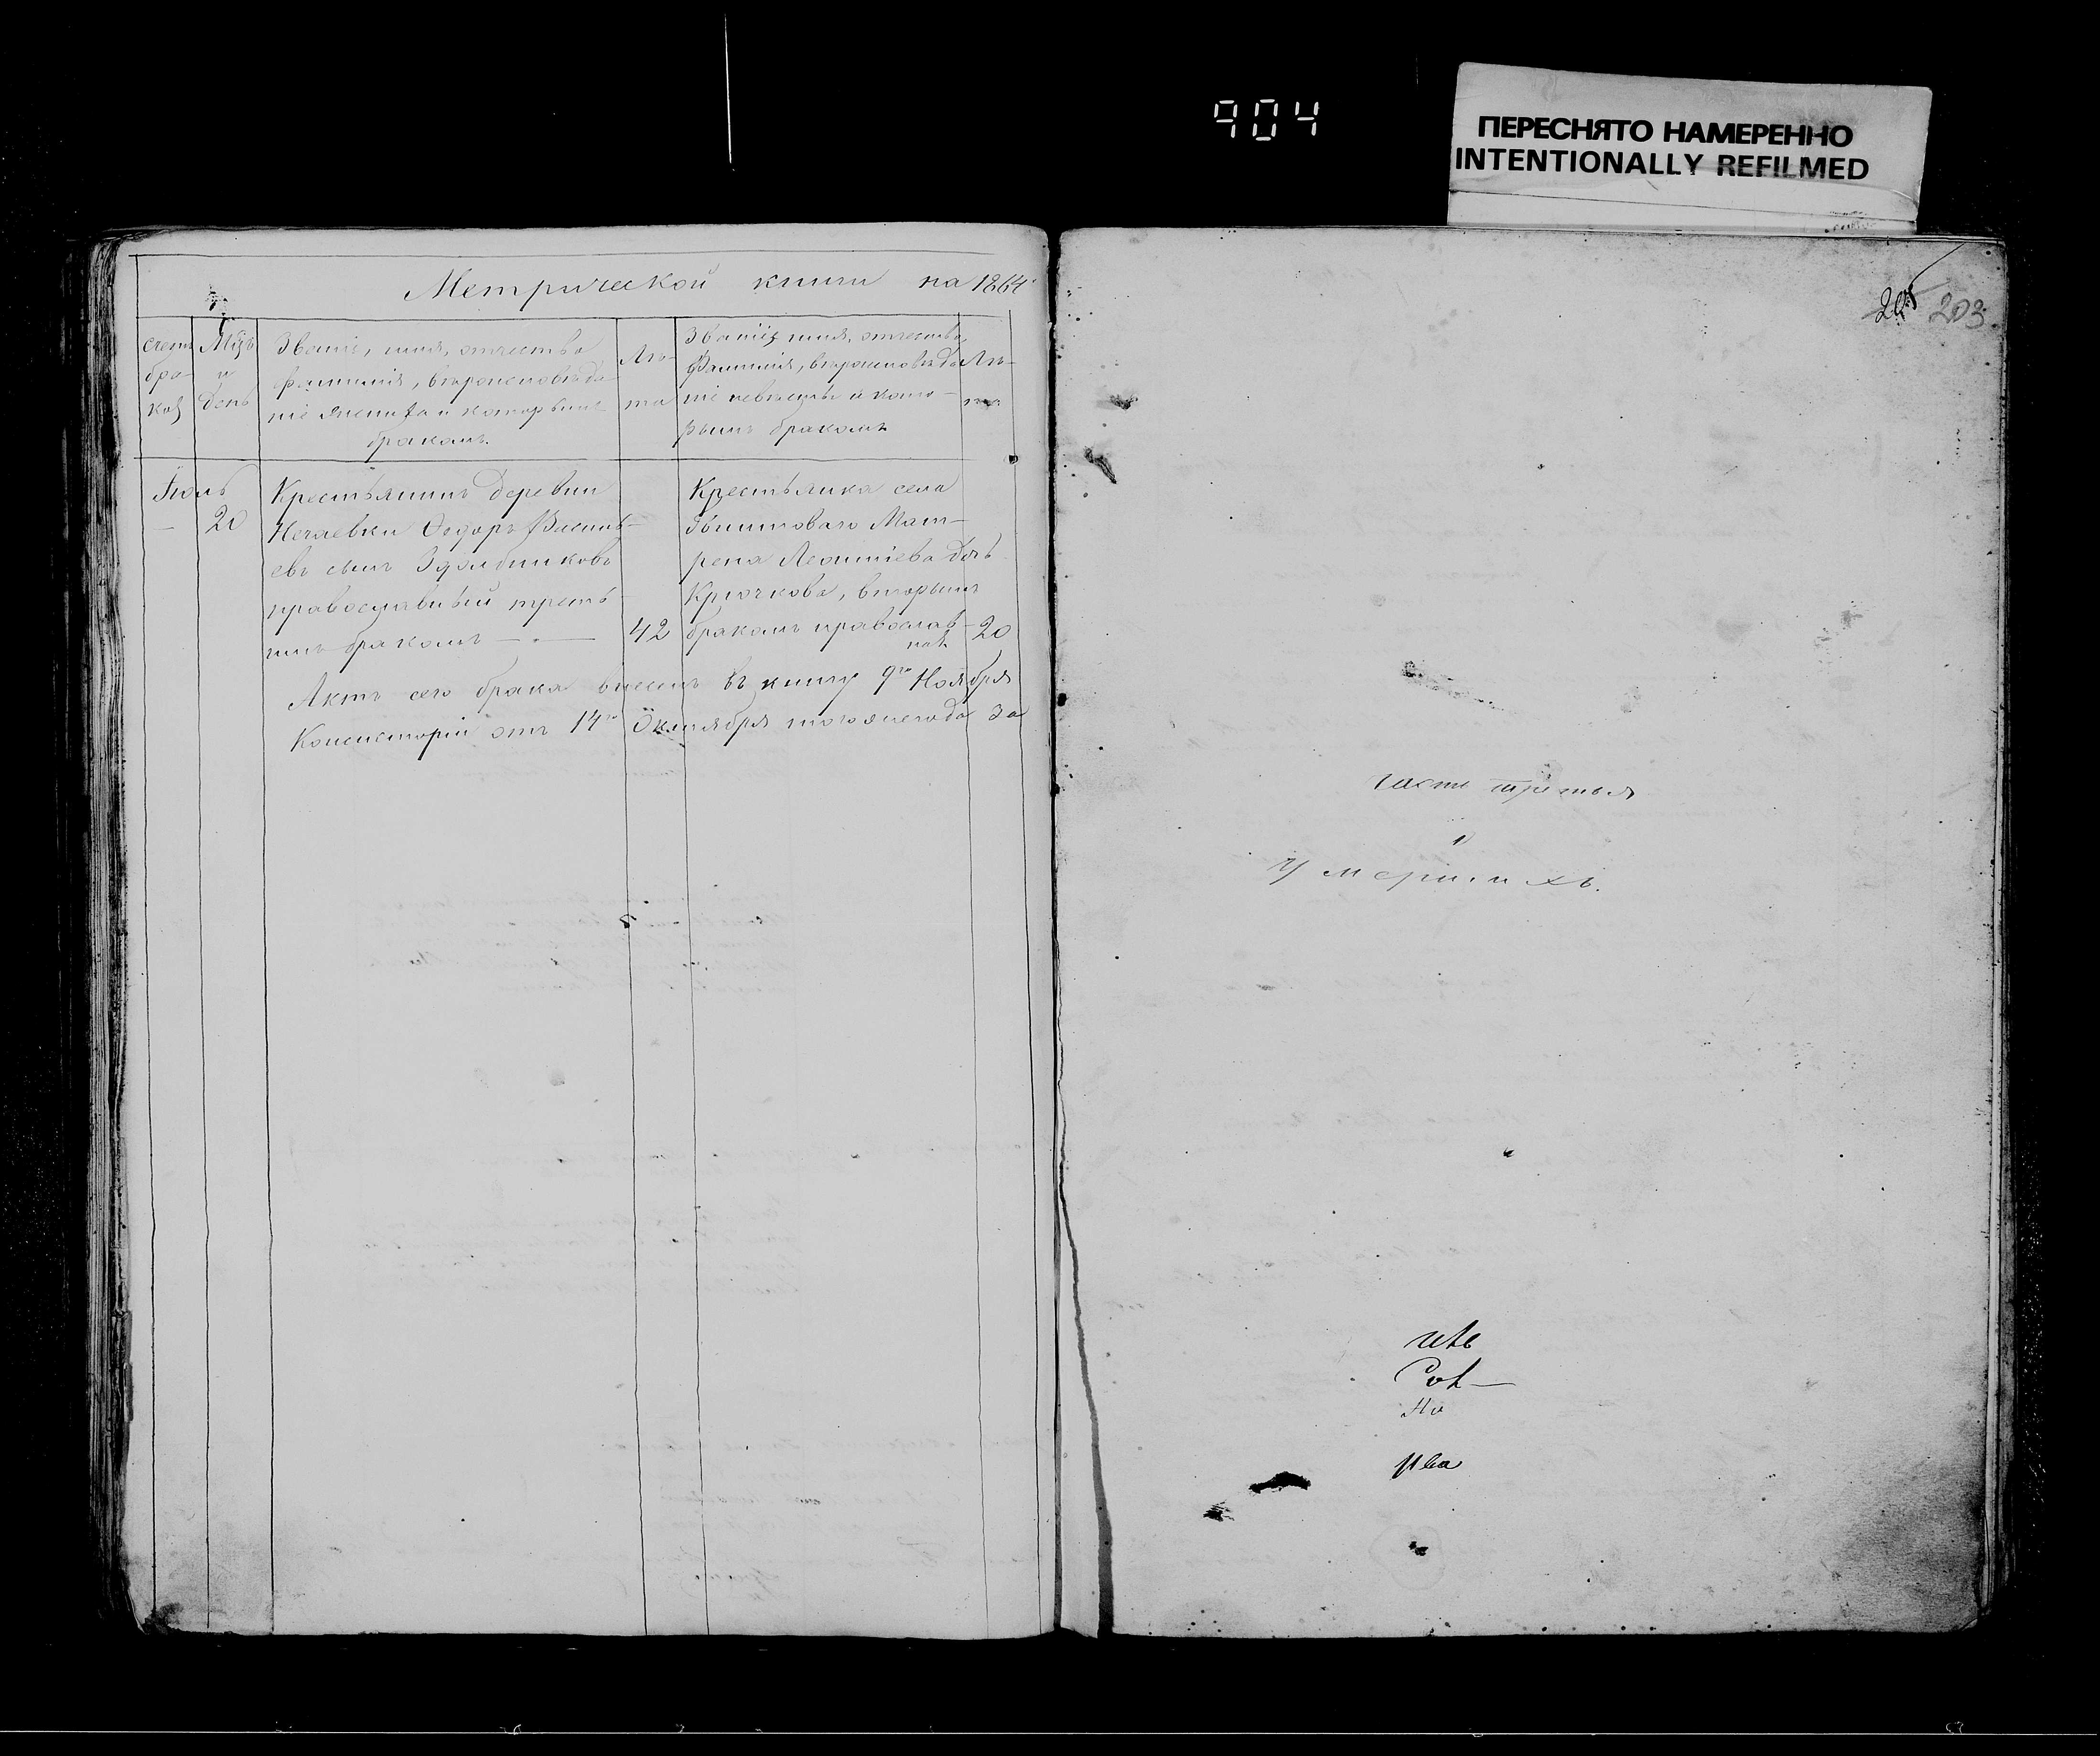 904
ПЕРЕСНЯТО НАМЕРЕННО
INTENTIONALLY REFILMED
Метрической книги на 1864
счетъ
бра-
ков
Мцъ
и
день
Званіе, имя, отчество
фамилія, вѣроисповѣда-
ніе жениха и которымъ
бракомъ.
Лѣ-
та
Званіе, имя, отчество,
фамилія, вѣроисповѣда
ніе невѣсты и кото-
рымъ бракомъ
Лѣ-
та
Іюль
20
Крестьянинъ деревни
Нечаевки Ѳедоръ
евъ сынъ
православный треть-
имъ бракомъ
42
Крестьянка села
Мат-
рена Леонтіева дочь
Крючкова, вторымъ
бракомъ православ-
ная
20
Актъ сего брака внесенъ въ книгу 9го Ноября
Консисторіи отъ 14го Октября того же года за
205 203.
часть третья
о
умершихъ.